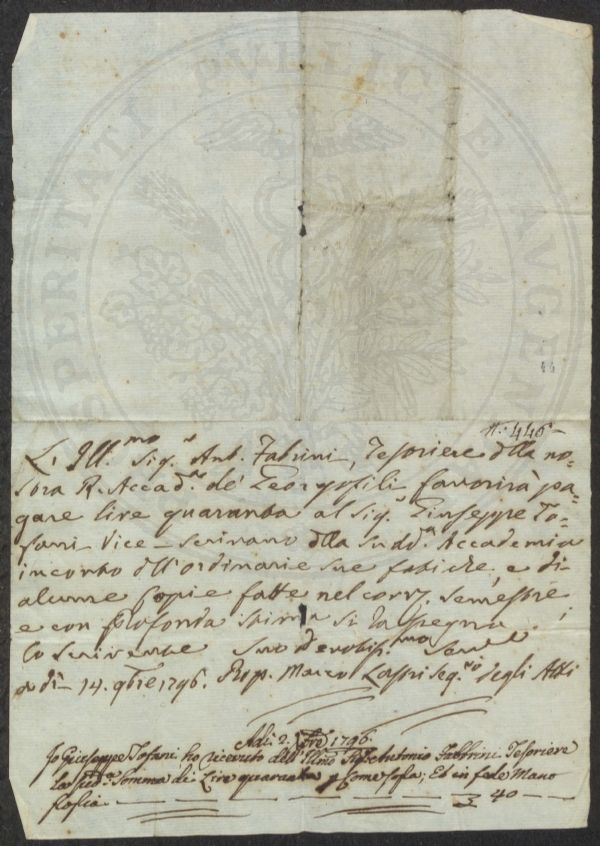 PROSPERITATI PVBLICAE AVGENDAE
44
N.o 446
L'Ill.mo Sig.r Ant. Fabrini, Tesoriere della no-
stra R. Accad.a de' Georgofili favorirà pa-
gare lire quaranta al Sig.r Giuseppe To-
fani Vice-scrivano della sudd.a Accademia
in conto dell'ordinarie sue fatiche, e di
alcune Copie fatte nel corr.e semestre
e con profonda stima si rassegna
Lo scrivente Suo devotiss.mo
a dì 14. 9bre 1796. Prop. Marco Lastri Seg.rio degli Atti
Adì 2. Xbre 1796
Io Giuseppe Tofani ho ricevuto dall' Illmo Sig.re Antonio Fabbrini Tesoriere
La sud.a Somma di Lire quaranta Come sopra; Ed in fede Mano
Propria 40